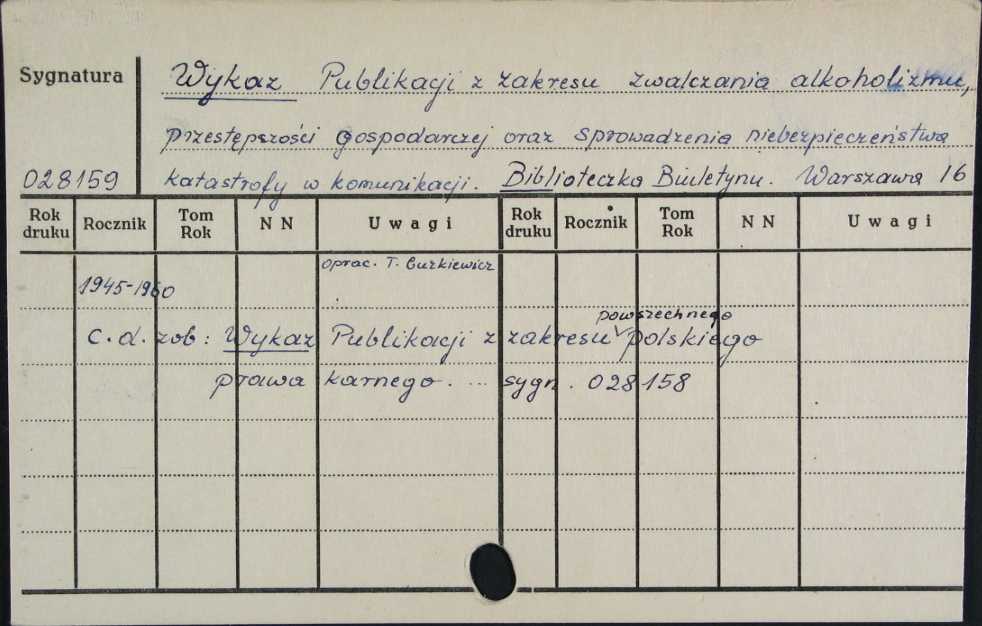 Sygnatura
Wykaz Publikacji z zakresu zwalczania alkoholizmu,
przestępczości gospodarczej oraz sprowadzenia niebezpieczeństwa
028159 katastrofy w komunikacji. Biblioteczka Biuletynu. Warszawa 16
Rok druku Rocznik Tom Rok NN Uwagi Rok druku Rocznik Tom Rok NN Uwagi
oprac. T. Burkiewicz
1945-1960
powszechnego
c.d. zob: Wykaz Publikacji z zakresu polskiego
prawa karnego. ... sygn. 028158